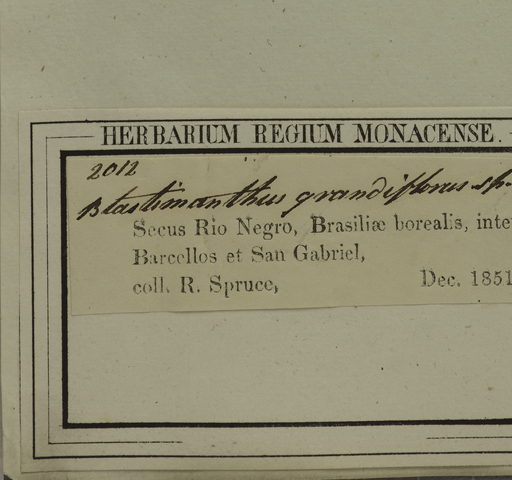 HERBARIUM REGIUM MONACENSE.
2012
Blastimanthus grandiflorus sp.
Secus Rio Negro, Brasiliæ borealis, inter
Barcellos et San Gabriel,
coll. R. Spruce, Dec. 1851